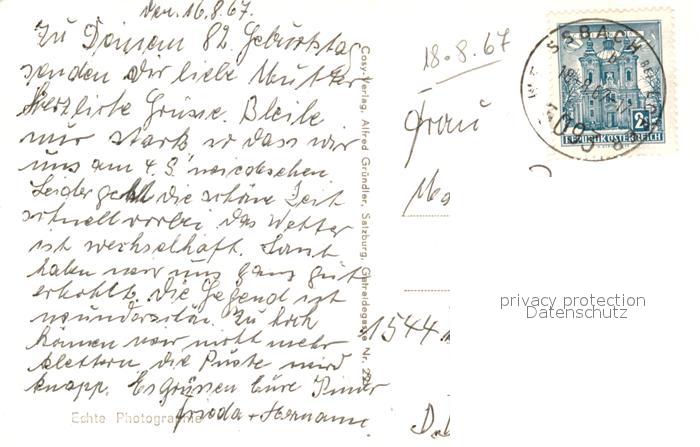 den 16.8.67.
Zu Deinem 82. Geburtstag
senden Dir liebe Mutter
Herzliche Grüsse. Bleibe
nur stark so dass wir
uns am 4.9. wiedersehen
Leider geht die schöne Zeit
schnell vorbei das Wetter
ist wechselhaft. Sonst
haben wir uns ganz gut
erhohlt. Die Gegend ist
wunderschön. Zu hoch
können wir nicht mehr
klettern, die Puste wird
knapp. Es Grüssen Eure Kinder
Frieda + Hermann
Echte Photographie
Cosy-Verlag, Alfred Gründler, Salzburg, Getreidegasse Nr. 22
18.8.67
Frau
1544
SSBACH
REPUBLIK ÖSTERREICH
privacy protection
Datenschutz